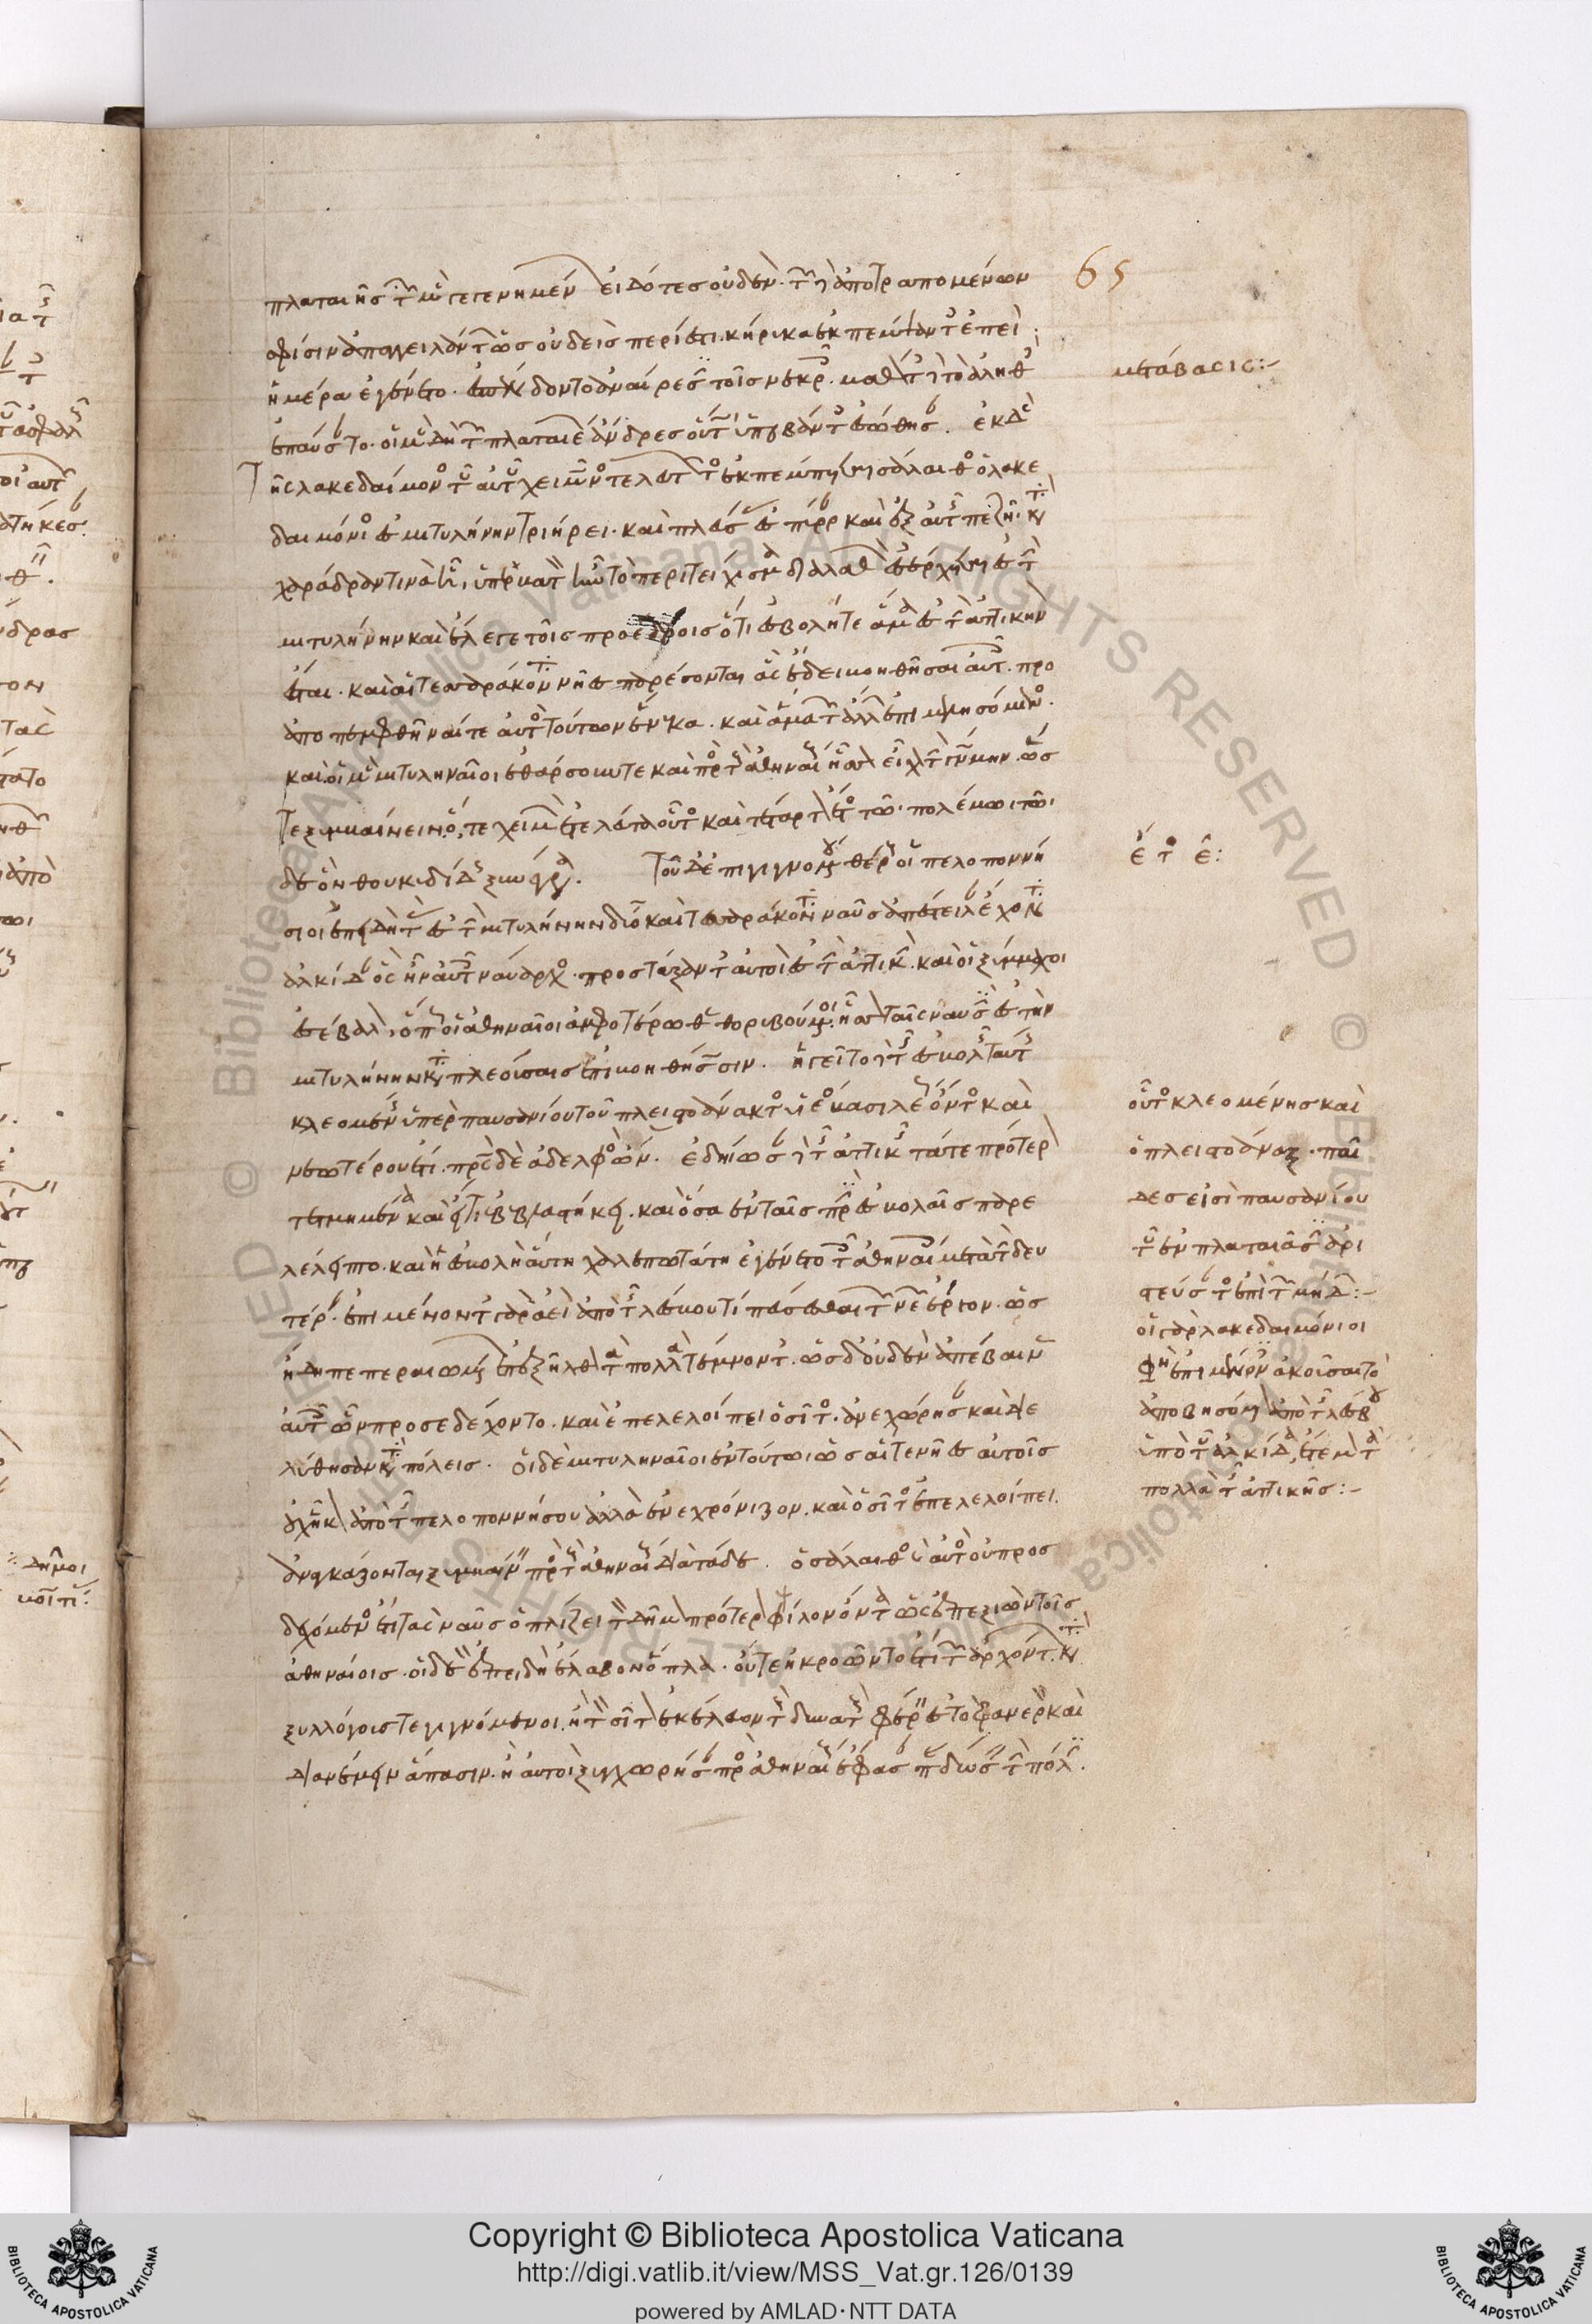 πλαταιῆς τῶν μὲν γεγενημένων εἰδότες οὐδέν. τῶν δὲ ἀποτραπομένων
σφίσιν ἀπαγγειλάντων ὡς οὐδεὶς περίεστι. κήρυκα ἐκπέμψαντες ἐπεὶ
ἡμέρα ἐγένετο. ἐσπένδοντο ἀναίρεσιν τοῖς νεκροῖς. μαθόντες δὲ τὸ ἀληθὲς
ἐπαύσαντο. οἱ μὲν δὴ τῶν πλαταιῶν ἄνδρες οὕτως ὑπερβάντες ἐσώθησαν. ἐκ δὲ
τῆς λακεδαίμονος τοῦ αὐτοῦ χειμῶνος τελευτῶντος ἐκπέμπεται σάλαιθος ὁ λακε
δαιμόνιος ἐς μιτυλήνην τριήρει. καὶ πλεύσας ἐς πύρραν καὶ ἐξ αὐτῆς πεζῆ. κατὰ
χαράδραν τινὰ ᾗ ὑπερβατὸν ἦν τὸ περιτείχισμα διαλαθὼν ἐσέρχεται ἐς τὴν
μιτυλήνην καὶ ἔλεγε τοῖς προέδροις ὅτι ἐσβολή τε ἅμα ἐς τὴν ἀττικὴν
ἔσται. καὶ αἱ τεσσαράκοντα νῆες παρέσονται ἃς ἔδει βοηθῆσαι αὐτοῖς. προ
αποπεμφθῆναί τε αὐτὸς τούτων ἕνεκα. καὶ ἅμα τῶν ἄλλων ἐπιμελησόμενος.
καὶ οἱ μὲν μιτυληναῖοι ἐθάρσουν τε καὶ πρὸς τοὺς ἀθηναίους ἧσσον εἶχον τὴν γνώμην. ὥσ
τε ξυμβαίνειν. ὅ, τε χειμὼν ἐτελεύτα οὗτος καὶ τέταρτον ἔτος τῶι πολέμωι τῶι
δε ὃν θουκυδίδης ξυνέγραψε. Τοῦ δ' ἐπιγιγνομένου θέρους οἱ πελοποννή
σιοι ἐπειδὴ τὰς ἐς τὴν μιτυλήνην δύο καὶ τεσσαράκοντα ναῦς ἀπέστειλαν ἔχοντα
ἀλκίδαν ὃς ἦν αὐτοῖς ναύαρχος. προστάξαντες αὐτοὶ ἐς τὴν ἀττικὴν. καὶ οἱ ξύμμαχοι
ἐσέβαλον, ὅπως οἱ ἀθηναῖοι ἀμφοτέρωθεν θορυβούμενοι. ἧσσον ταῖς ναυσὶν ἐς τὴν
μιτυλήνην καταπλεούσαις ἐπιβοηθήσωσιν. ἡγεῖτο δὲ τῆς ἐσβολῆς ταύτης
κλεομένης ὑπὲρ παυσανίου τοῦ πλειστοάνακτος υἱέος βασιλέως ὄντος καὶ
νεωτέρου ἔτι. πατρὸς δὲ ἀδελφὸς ὤν. ἐδήιωσαν δὲ τῆς ἀττικῆς τά τε πρότερον
τετμημένα καὶ εἴ τι ἐβεβλαστήκει. καὶ ὅσα ἐν ταῖς πρὶν ἐσβολαῖς παρε
λέλειπτο. καὶ ἡ ἐσβολὴ αὕτη χαλεπωτάτη ἐγένετο τοῖς ἀθηναίοις μετὰ τὴν δευ
τέραν. ἐπιμένοντες γὰρ ἀεὶ ἀπὸ τῆς λέσβου τι πεύσεσθαι τῶν νεῶν ἔργον. ὡς
ἤδη πεπεραιωμένων ἐπεξῆλθον τὰ πολλὰ τέμνοντες. ὡς δ' οὐδὲν ἀπέβαινεν
αὐτοῖς ὧν προσεδέχοντο. καὶ ἐπελελοίπει ὁ σῖτος. ἀνεχώρησαν καὶ διε
λύθησαν κατὰ πόλεις. Οἱ δὲ μιτυληναῖοι ἐν τούτωι ὡς αἵ τε νῆες αὐτοῖς
οὐχ ἧκον ἀπὸ τῆς πελοποννήσου ἀλλὰ ἐνεχρόνιζον. καὶ ὁ σῖτος ἐπελελοίπει.
ἀναγκάζονται ξυμβαίνειν πρὸς τοὺς ἀθηναίους διὰ τάδε. ὁ σάλαιθος καὶ αὐτὸς οὐ προσ
δεχόμενος ἔτι τὰς ναῦς ὁπλίζει τὸν δῆμον πρότερον ψιλὸν ὄντα ὡς ἐπεξιὼν τοῖς
ἀθηναίοις. οἱ δὲ ἐπειδὴ ἔλαβον ὅπλα. οὔτε ἠκροῶντο ἔτι τῶν ἀρχόντων. κατὰ
ξυλλόγους τε γιγνόμενοι. ἢ τὸν σῖτον ἐκέλευον τοὺς δυνατοὺς φέρειν ἐς τὸ φανερὸν καὶ
διανέμειν ἅπασιν. ἢ αὐτοὶ ξυγχωρήσαντες πρὸς ἀθηναίους ἔφασαν παραδώσειν τὴν πόλιν.
65
μετάβασις:-
ἔτος ε:
οὗτος κλεομένης καὶ
ὁ πλειστοάναξ. παῖ
δες εἰσὶ παυσανίου
τοῦ ἐν πλαταιαῖς ἀρι
στεύσαντος ἐπὶ τῶν μήδων:-
οἱ γὰρ λακεδαιμόνιοι
φησὶν ἐπιμένοντες ἀκοῦσαι τὸ
ἀποβησόμενον ἀπὸ τῆς λέσβου
ὑπὸ τοῦ ἀλκίδα, ἔτεμον τὰ
πολλὰ τῆς ἀττικῆς:-